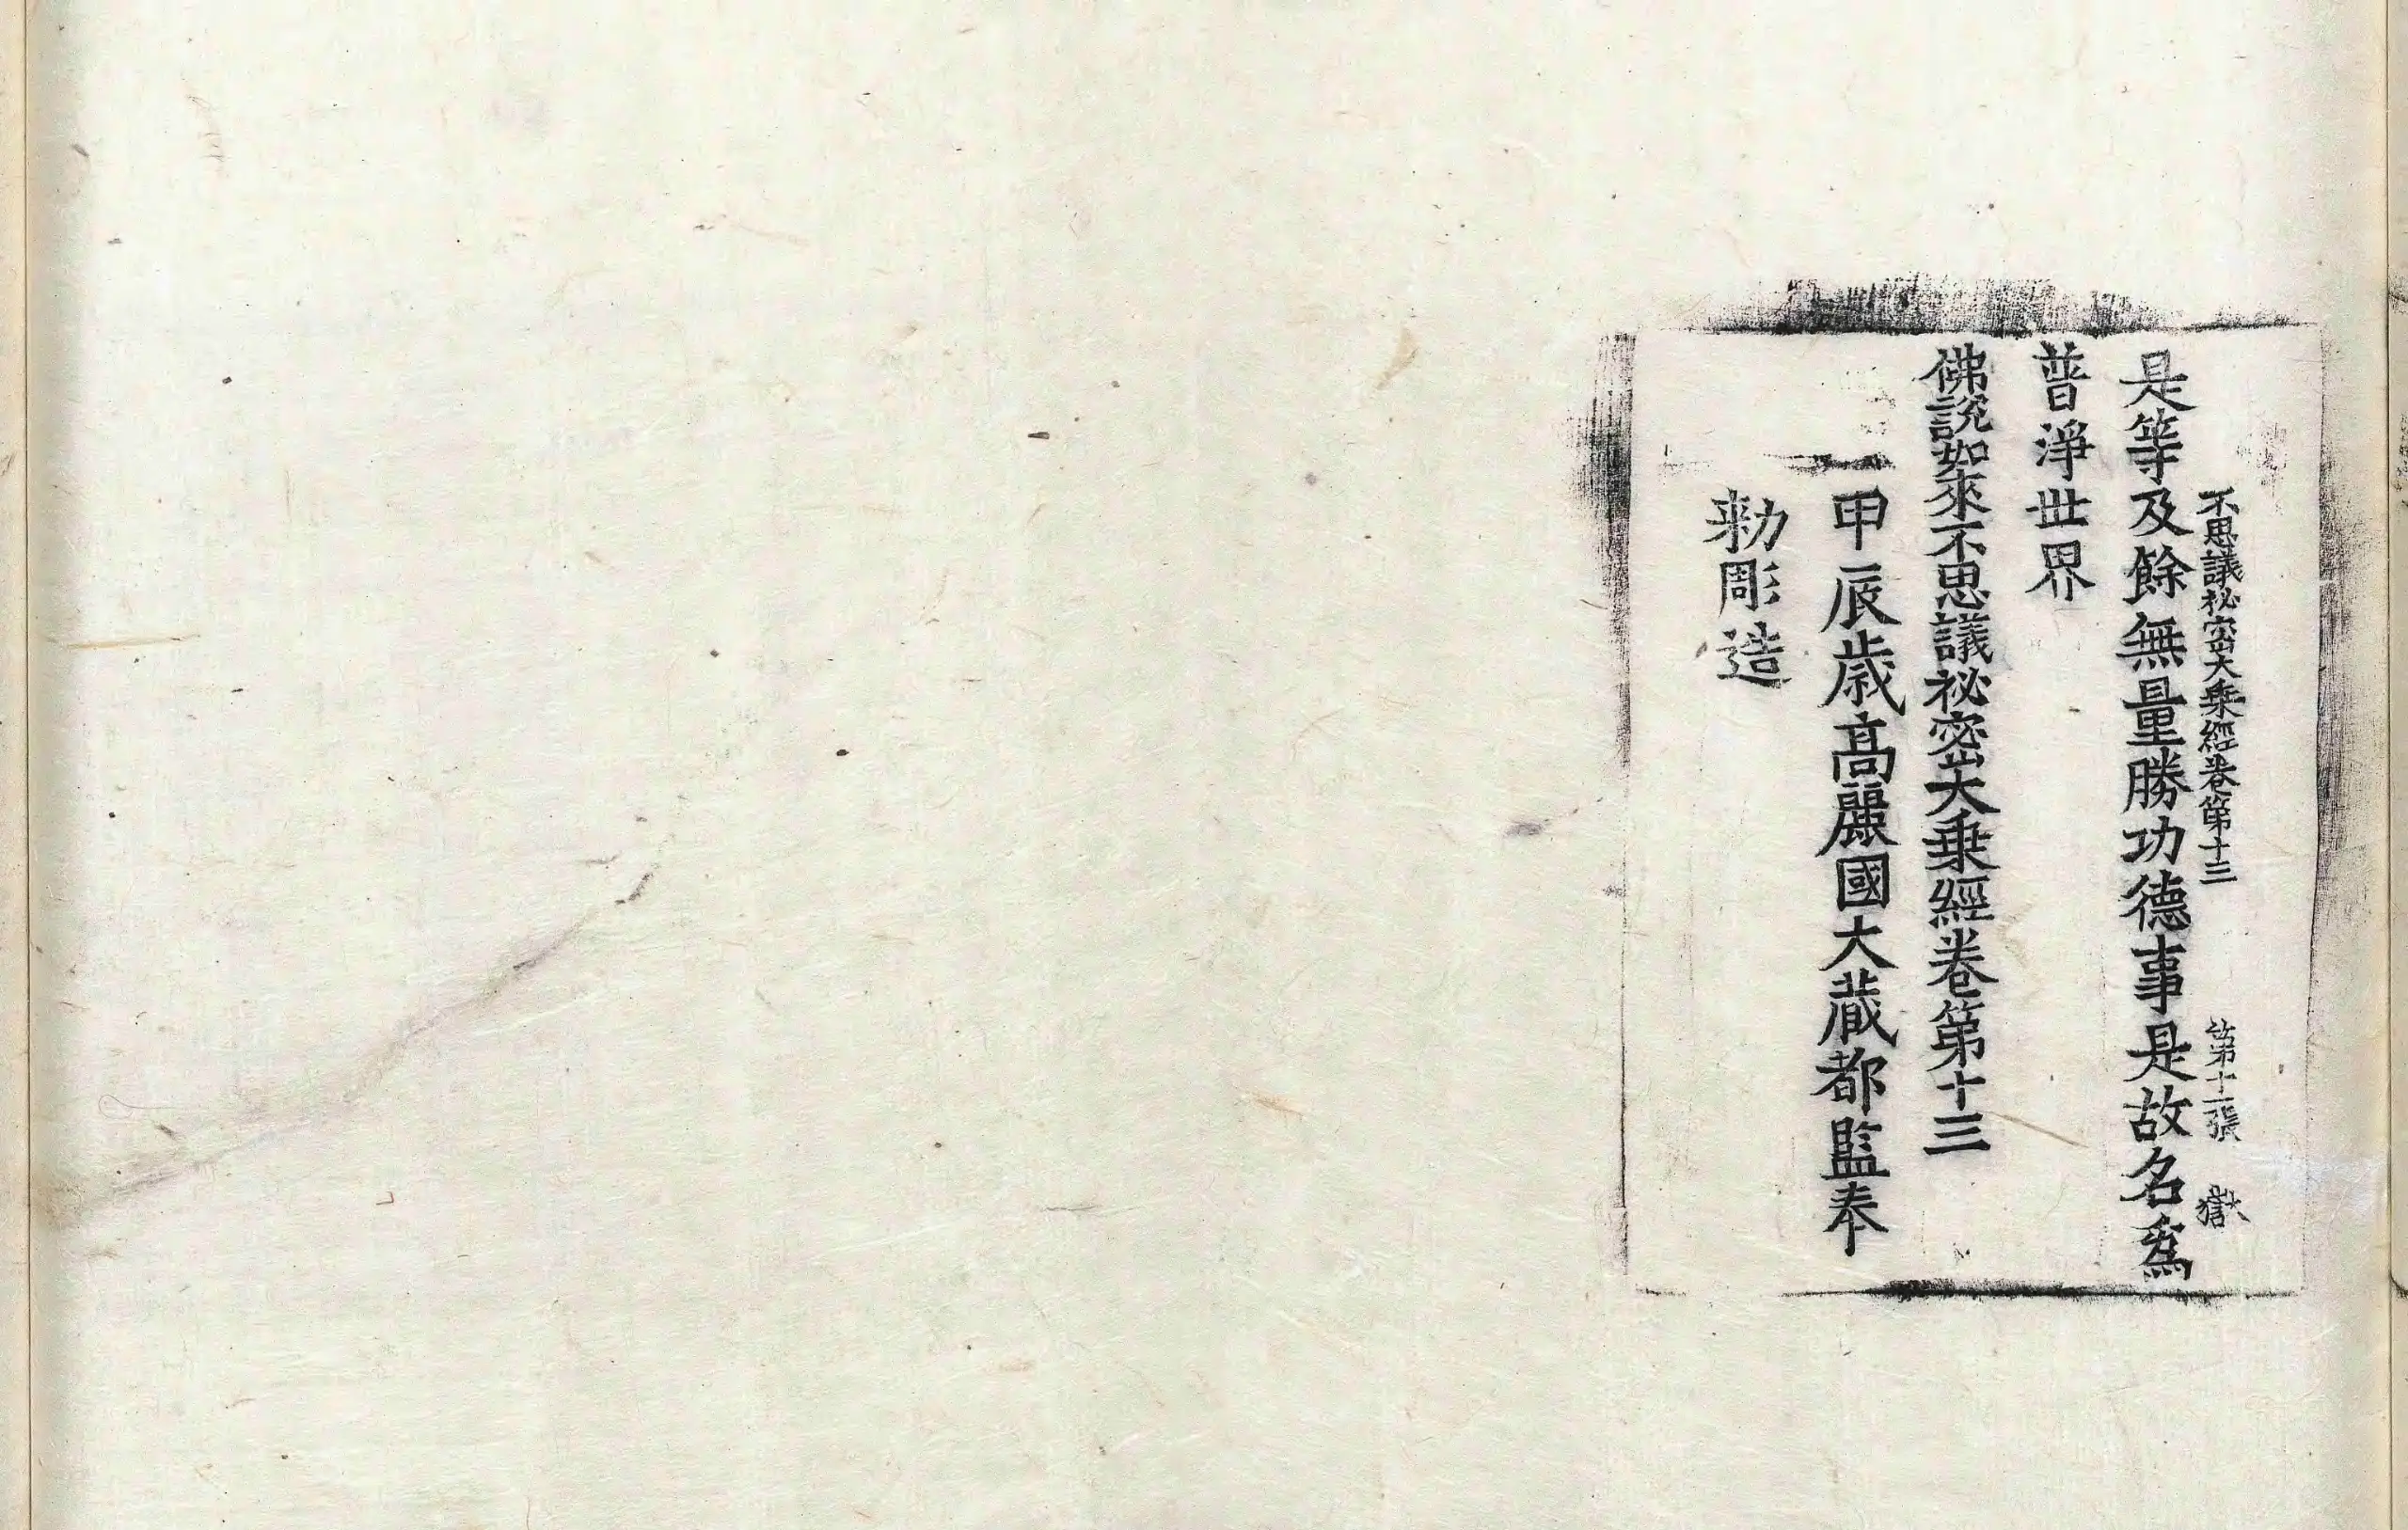 不思議祕密大乘經卷第十三 第十一張 獄
是等及餘無量勝功德事是故名爲
普淨世界
佛說如來不思議祕密大乘經卷第十三
甲辰歲高麗國大藏都監奉
勑彫造